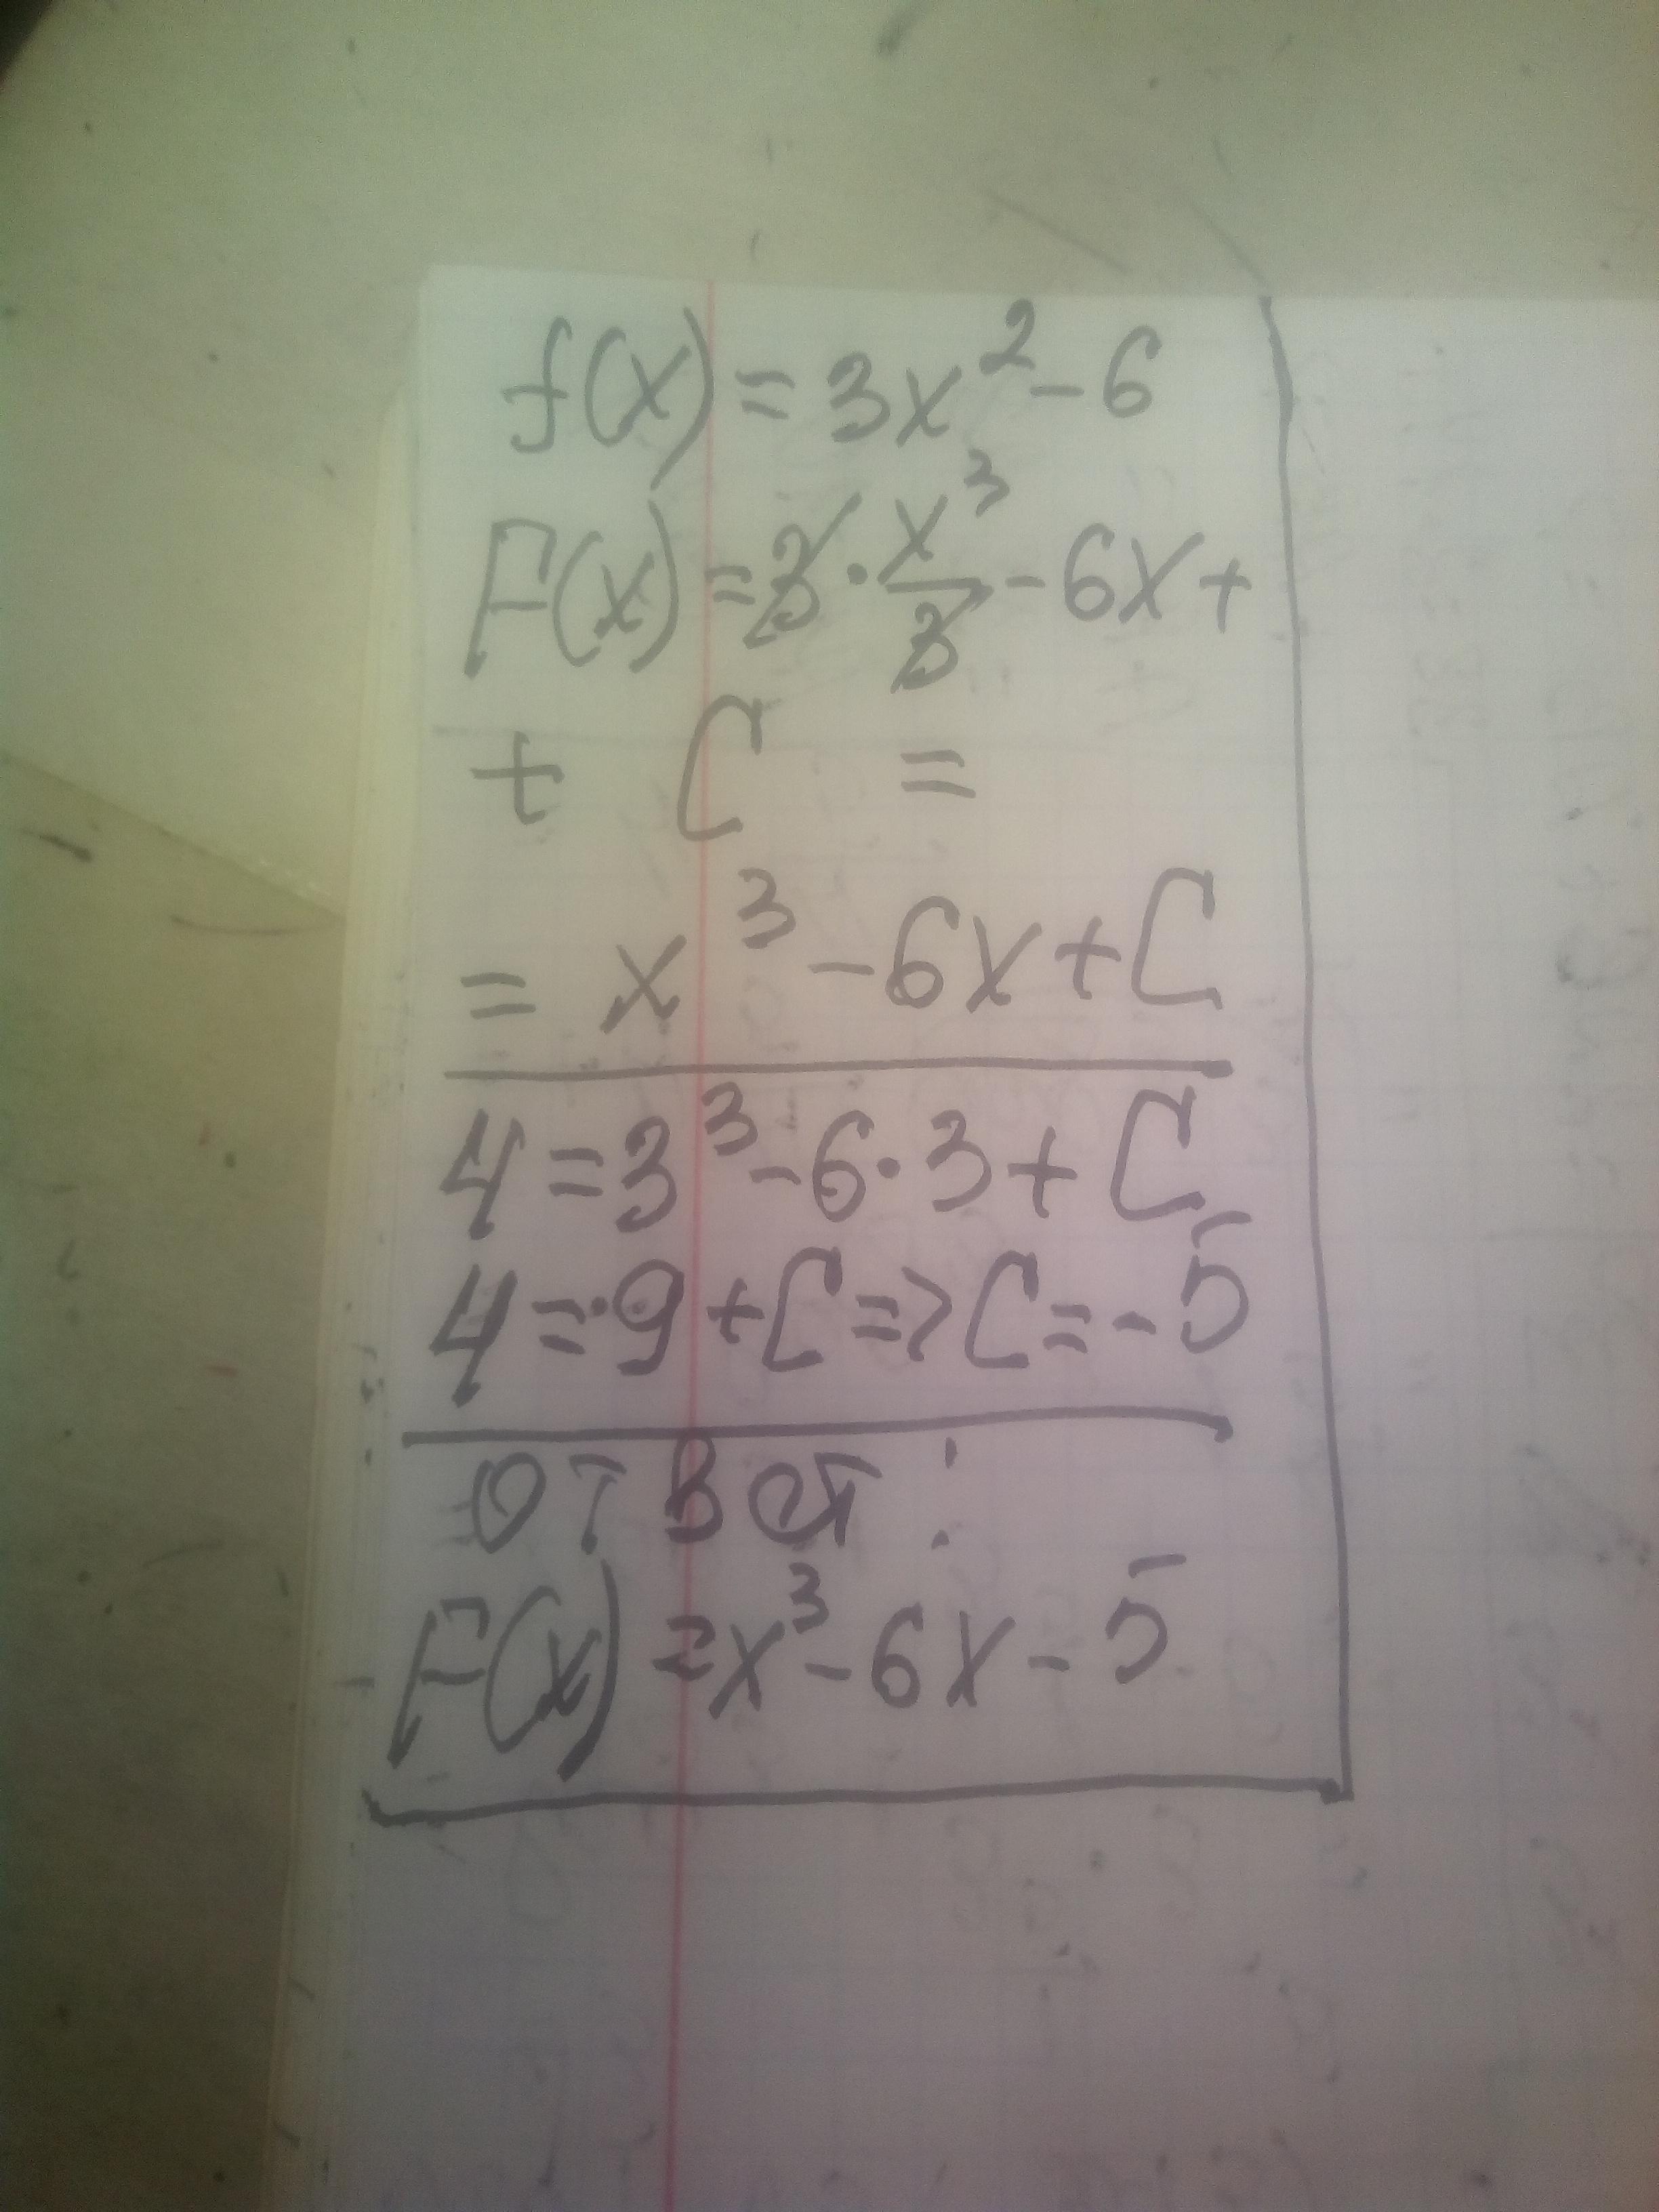 f(x) = 3x² - 6
F(x) = 3 · x³/3 - 6x +
+ C =
= x³ - 6x + C
4 = 3³ - 6 · 3 + C
4 = 9 + C => C = - 5
ответ :
F(x) = x³ - 6x - 5